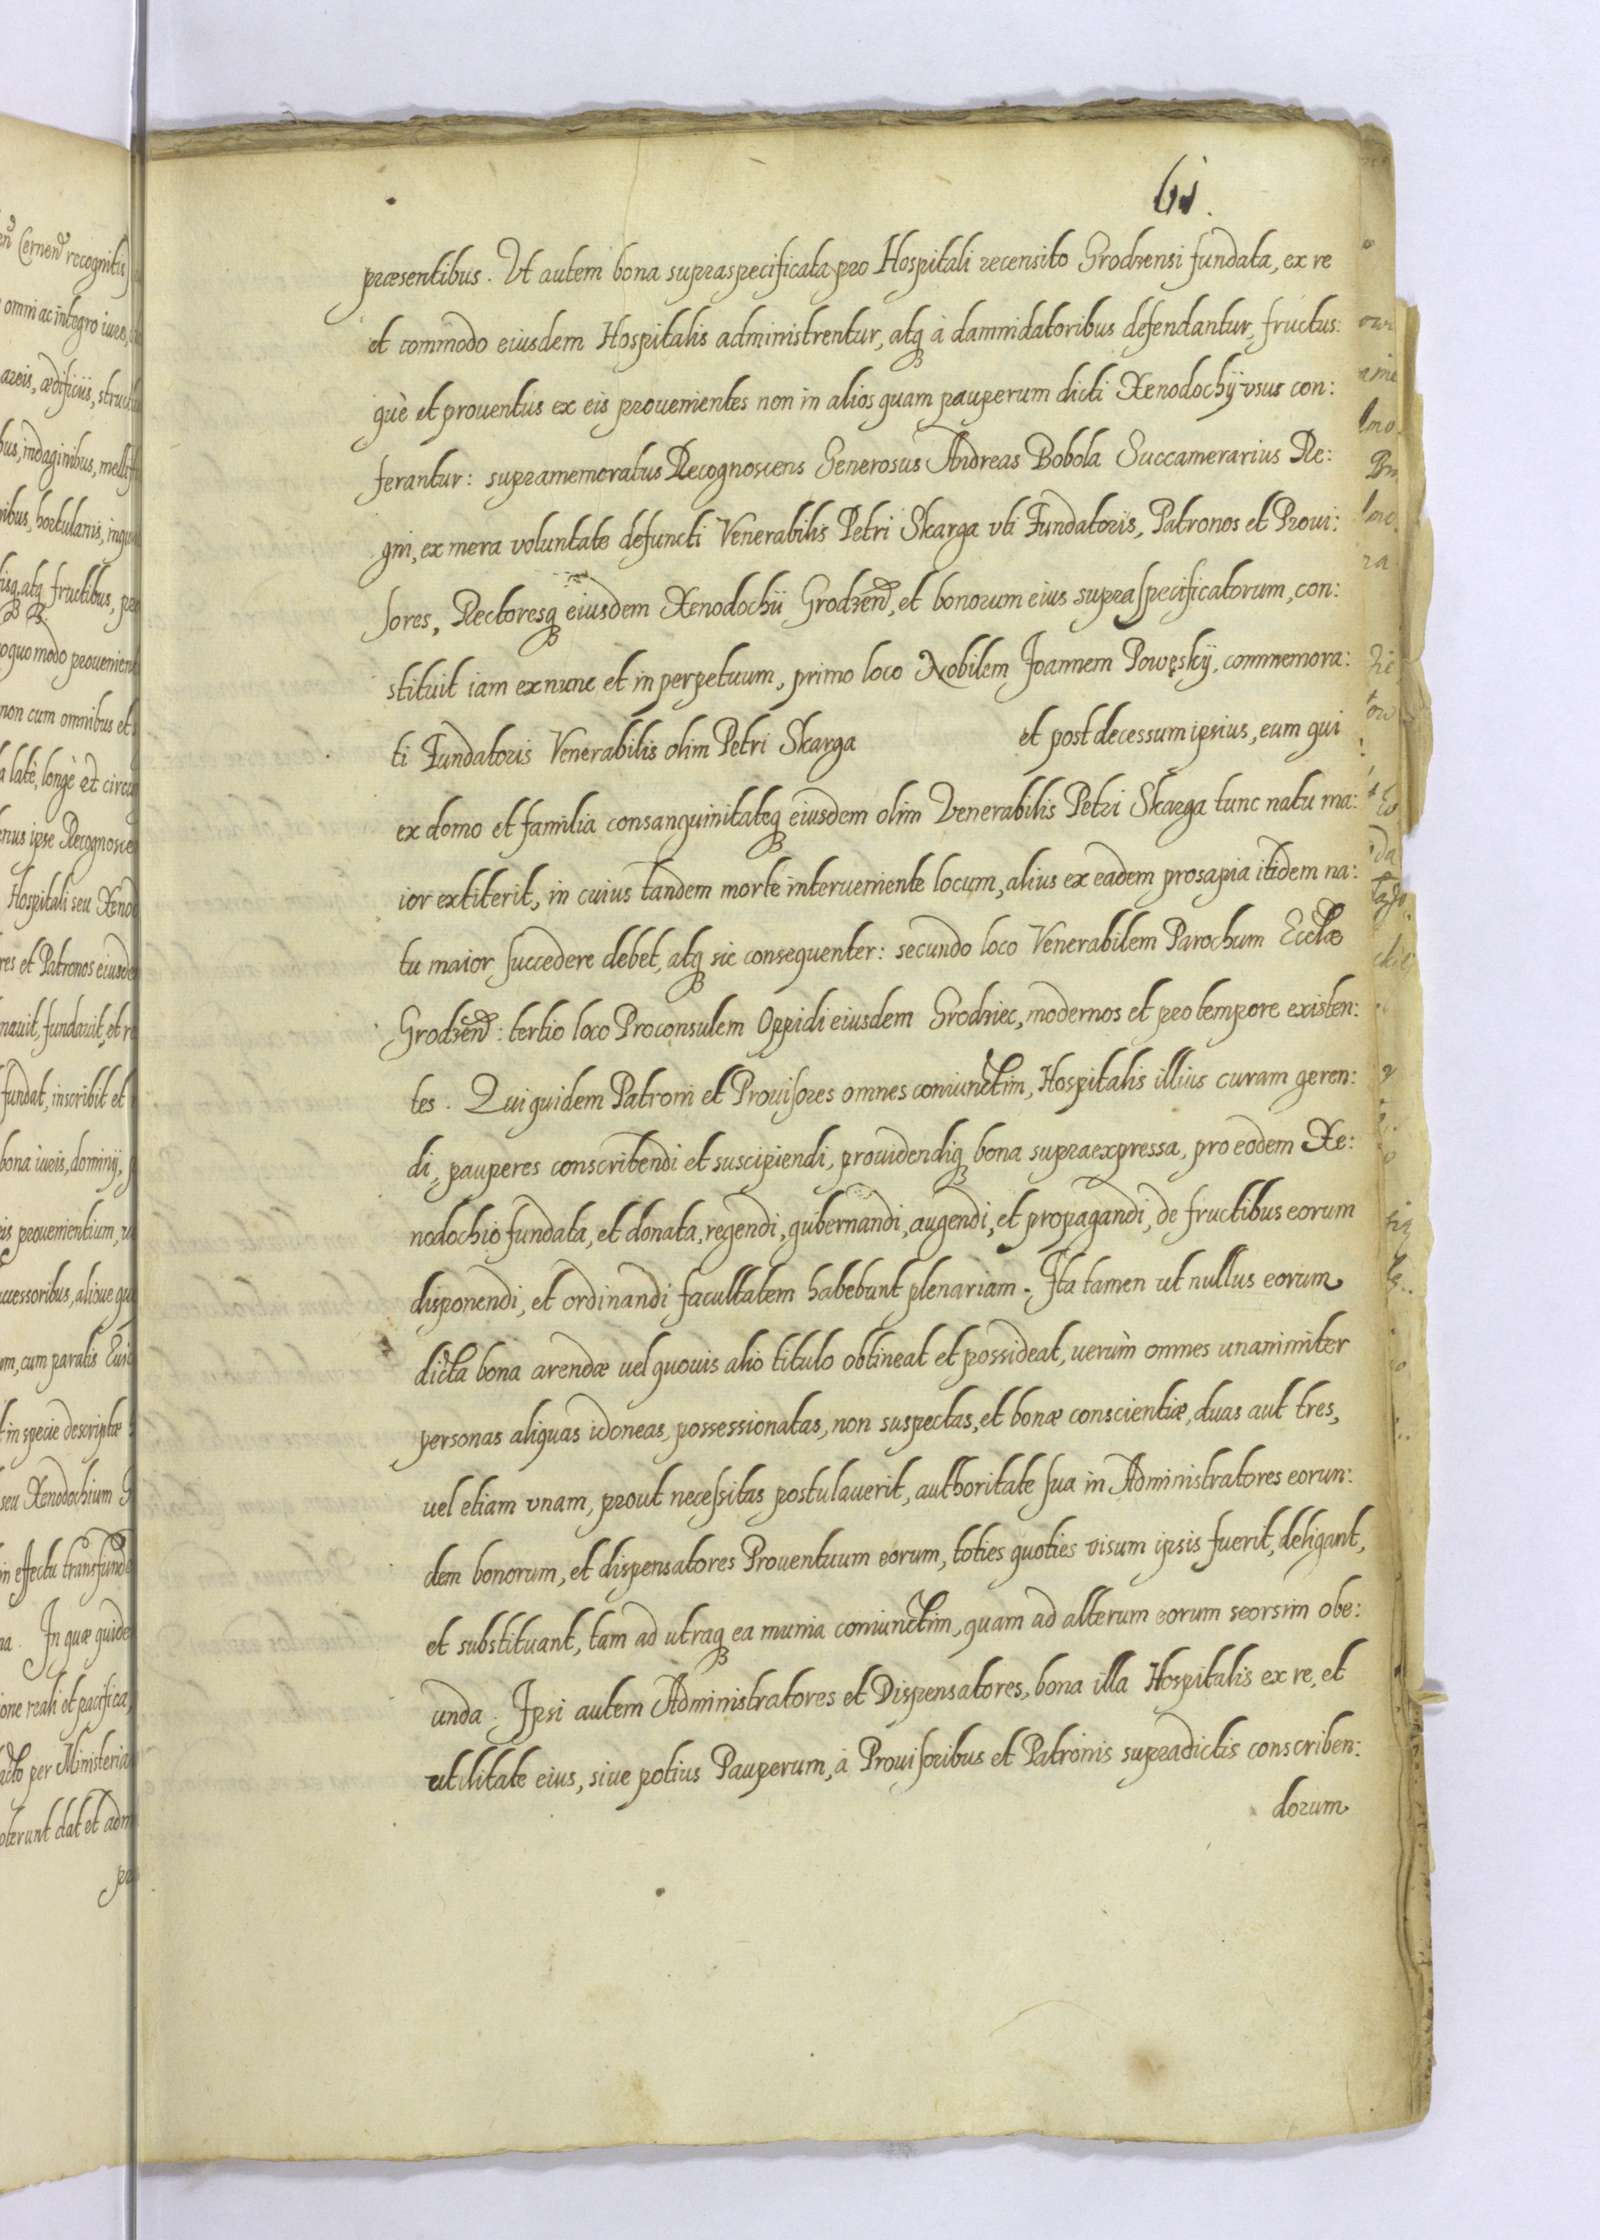 61.
præsentibus. Vt autem bona supraspecificata pro Hospitali recensito Grodzensi fundata, ex re
et commodo eiusdem Hospitalis administrentur, atq à damnidatoribus defendantur, fructus:
què et prouentus ex eis prouenientes non in alios quam pauperum dicti Xenodochij vsus con:
ferantur: supramemoratus Recognoscens Generosus Andreas Bobola Succamerarius Re:
gni, ex mera voluntate defuncti Venerabilis Petri Skarga vti Fundatoris, Patronos et Proui:
sores, Rectoresq eiusdem Xenodochii Grodzen, et bonorum eius supraspecificatorum, con:
stituit iam ex nunc et in perpetuum, primo loco Nobilem Joannem Powęskij, commemora:
ti Fundatoris Venerabilis olim Petri Skarga et post decessum ipsius, eum qui
ex domo et familia consanguinitateq eiusdem olim Venerabilis Petri Skarga tunc natu ma:
ior extiterit, in cuius tandem morte interueniente locum, alius ex eadem prosapia itidem na:
tu maior succedere debet, atq sic consequenter: secundo loco Venerabilem Parochum Ecclæ
Grodzen: tertio loco Proconsulem Oppidi eiusdem Grodziec, modernos et pro tempore existen:
tes. Qui quidem Patroni et Prouisores omnes coniunctim, Hospitalis illius curam geren:
di, pauperes conscribendi et suscipiendi, prouidendiq bona supraexpressa, pro eodem Xe:
nodochio fundata, et donata, regendi, gubernandi, augendi, et propagandi, de fructibus eorum
disponendi, et ordinandi facultatem habebunt plenariam. Ita tamen ut nullus eorum
dicta bona arendæ uel quouis alio titulo obtineat et possideat, uerùm omnes unanimiter
personas aliquas idoneas, possessionatas, non suspectas, et bonæ conscientiæ, duas aut tres,
uel etiam vnam, prout necessitas postulauerit, authoritate sua in Administratores eorun:
dem bonorum, et dispensatores Prouentuum eorum, toties quoties visum ipsis fuerit, deligant,
et substituant, tam ad utraq ea munia coniunctim, quam ad alterum eorum seorsim obe:
unda. Ipsi autem Administratores et Dispensatores, bona illa Hospitalis ex re, et
utilitate eius, siue potius Pauperum, à Prouisoribus et Patronis supradictis conscriben:
dorum